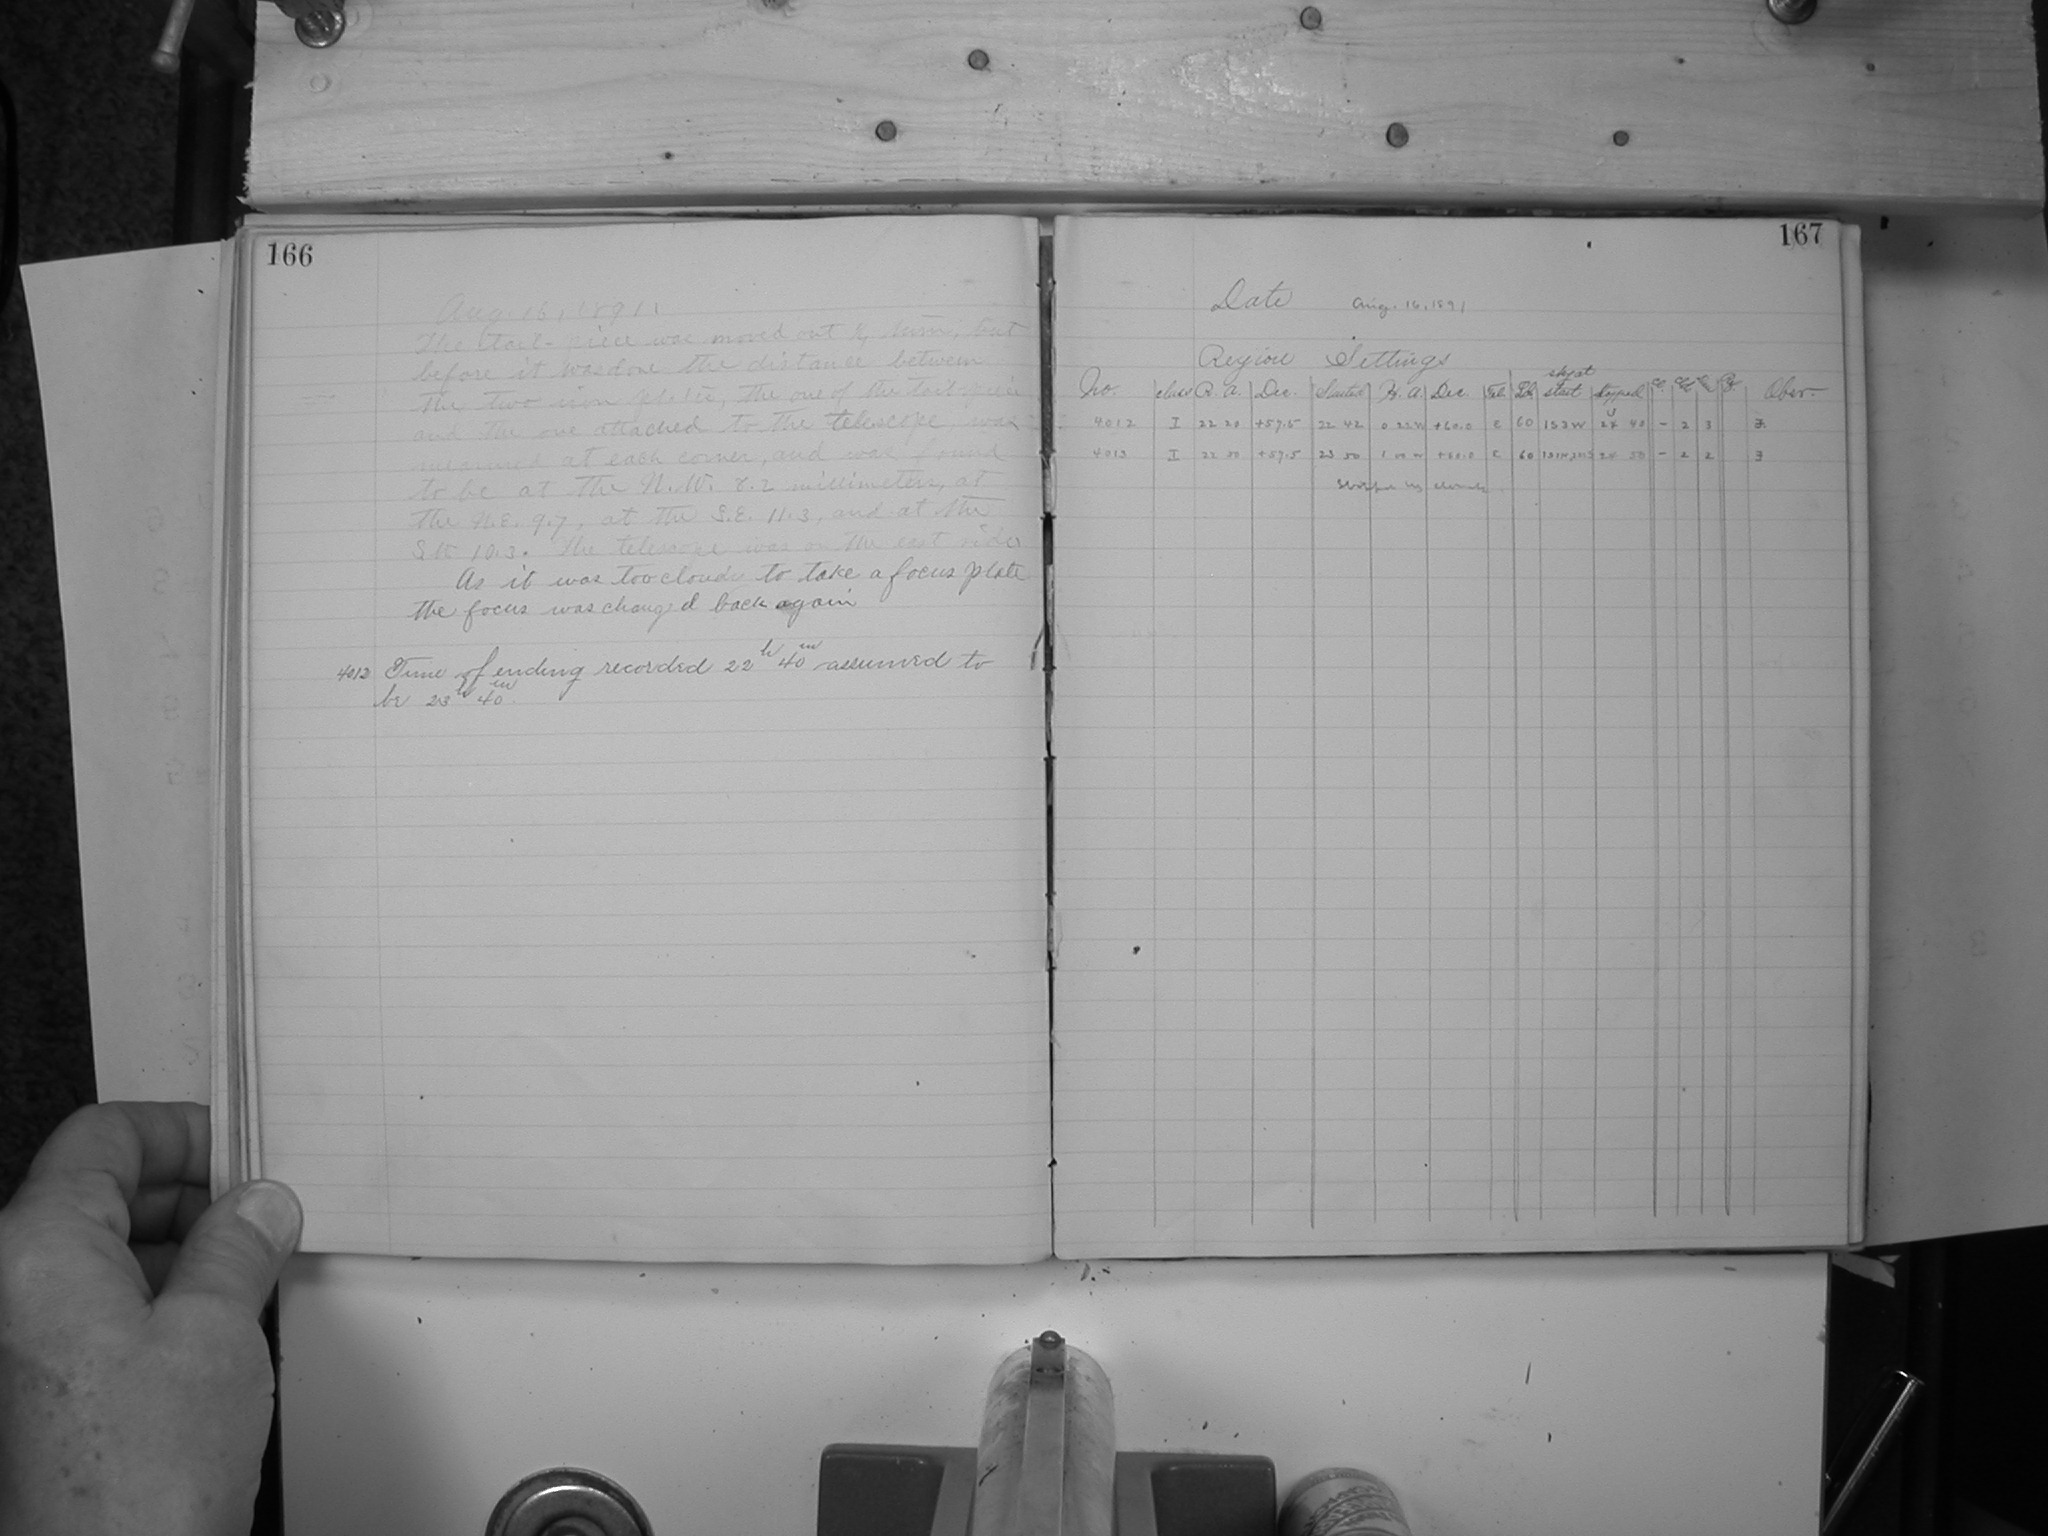 166
Aug. 16, 1891.
The tail-piece was moved out turn, but
before it was done the distance between
the two iron plates, the one of the tail-piece
and the one attached to the telescope, was
measured at each corner, and was found
to be at the N.W. 8.2 millimeters, at
the N.E. 9.7, at the S.E. 11.3, and at the
S.W. 10.3. The telescope was on the east side.
As it was too cloudy to take a focus plate
the focus was changed back again
4012 Time of ending recorded 22h 40m assumed to
be 23h 40m.
167
Date Aug. 16, 1891
Region Settings
No. class R. A. Dec. Started R. A. Dec. Tel. start stopped Obser.
4012 I 22 20 +59.5 22 42 0 22 W +60.0 E 60 153W 40 – 2 3
4013 I 22 50 +59.5 23 50 +60.0 E 60 50 – 2 2
Stopped by clouds.